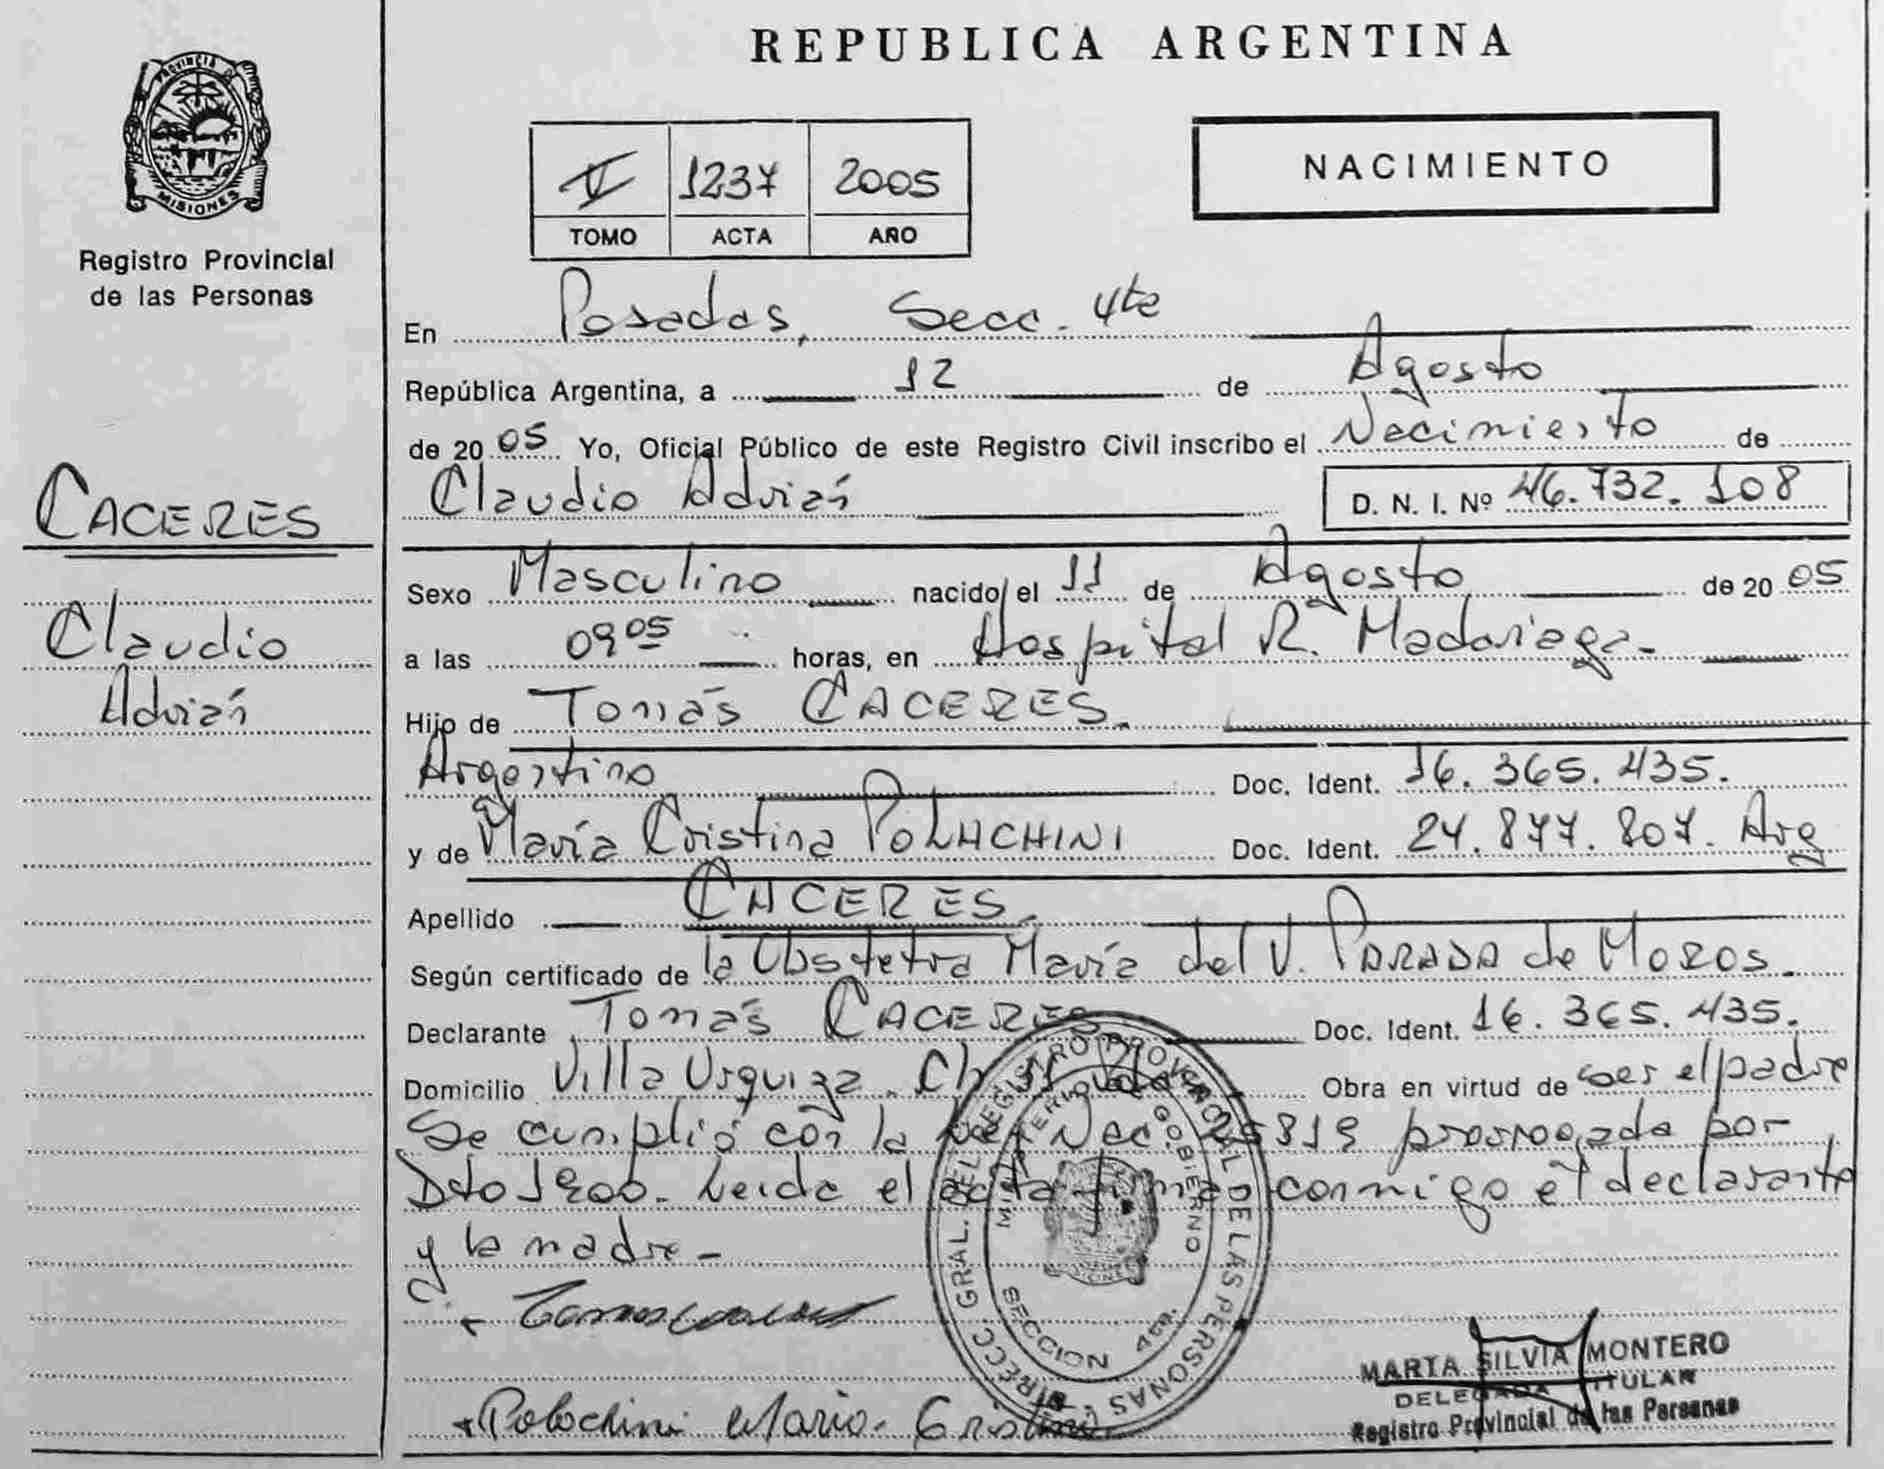 REPUBLICA ARGENTINA
PROVINCIA DE
MISIONES
Registro Provincial
de las Personas
V 1237 2005
TOMO ACTA AÑO
NACIMIENTO
En Posadas, Secc. 4ta
República Argentina, a 12 de Agosto
de 20 05 Yo, Oficial Público de este Registro Civil inscribo el Nacimiento de
Claudio Adrián
D. N. I. Nº 46.732.108
CACERES
Claudio
Adrián
Sexo Masculino nacido el 11 de Agosto de 20 05
a las 09 05 horas, en Hospital R. Madariaga.
Hijo de Tomás CACERES.
Argentino Doc. Ident. 16.365.435.
y de María Cristina POLACHINI Doc. Ident. 24.877.807. Arg
Apellido CACERES.
Según certificado de la Obstetra María del V. PARADA de MOROS.
Declarante Tomás CACERES Doc. Ident. 16.365.435.
Domicilio Villa Urquiza. Ch Obra en virtud de ser el padre
Se cumplió con la Ley Nac. 25819 prorrogada por
Dto 1900. Leida el acta firma conmigo el declarante
y la madre-
DIRECC. GRAL. DEL REGISTRO PROVINCIAL DE LAS PERSONAS
MINISTERIO GOBIERNO
SECCION 4ta.
Polochini Maria Cristina
MARTA SILVIA MONTERO
DELEGADA TITULAR
Registro Provincial de las Personas